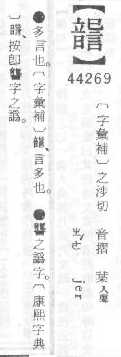 【】
44269
〔字彙補〕之涉切 音摺 葉入聲
ㄓㄜˊ jer
●多言也。〔字彙補〕、言多也。 ●讋之譌字。〔康熙字典
〕、按卽讋字之譌。